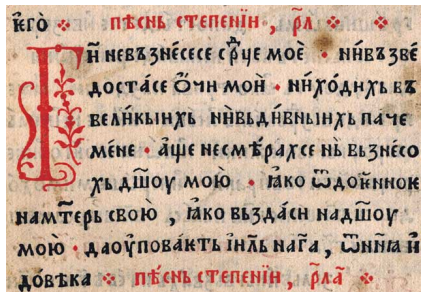 ѥго̀ ※ пѣ́снь степенїи , р҃л ※
Гй невъзне́сесе ср҃це моѐ • ни́въ́зве
доста́се ѻ҆́чи моѝ • ни́хо́дихь въ
вели́кыихь ни́вьди́вныихь паче
ме́не • а́ще несмѣ́рахсе нь̀ вьзне́со
хь дш҃оу мою̀ • ꙗ҆́ко ѿдое́нноѥ
нам҃терь свою̀ , ꙗ҆́ко вьзда́си надш҃оу
мою̀ • даоу҆пова́ѥть і҆и҃ль нага , ѿнн҃ꙗ и҆
до́вѣка ※ пѣ́снь степенїи , р҃ла ※